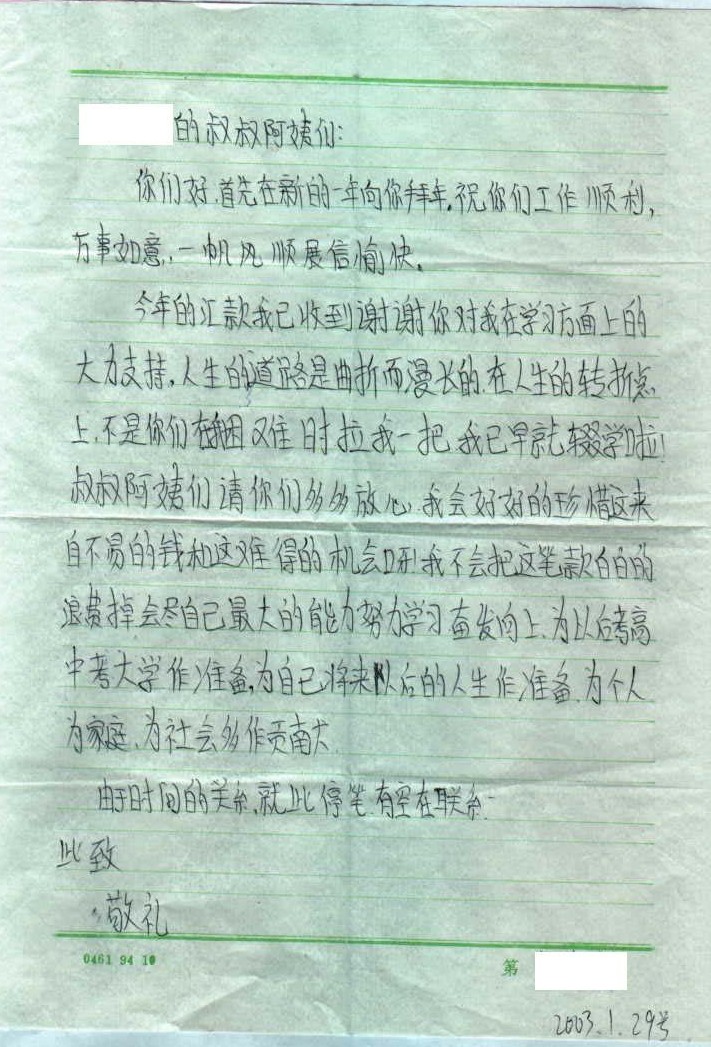 的叔叔阿姨们:
你们好.首先在新的一年向你拜年,祝你们工作顺利,
万事如意,一帆风顺展信愉快.
今年的汇款我已收到谢谢你对我在学习方面上的
大力支持,人生的道路是曲折而漫长的.在人生的转折点
上.不是你们在我困难时拉我一把我已早就辍学啦!
叔叔阿姨们请你们多多放心.我会好好的珍惜这来
自不易的钱和这难得的机会呀!我不会把这笔款白白的
浪费掉会尽自己最大的能力努力学习奋发向上.为以后考高
中考大学作准备,为自己将来以后的人生作准备.为个人
为家庭.为社会多作贡献.
由于时间的关系.就此停笔.有空在联系.
此致
敬礼
0461 94 10
第
2003.1.29号